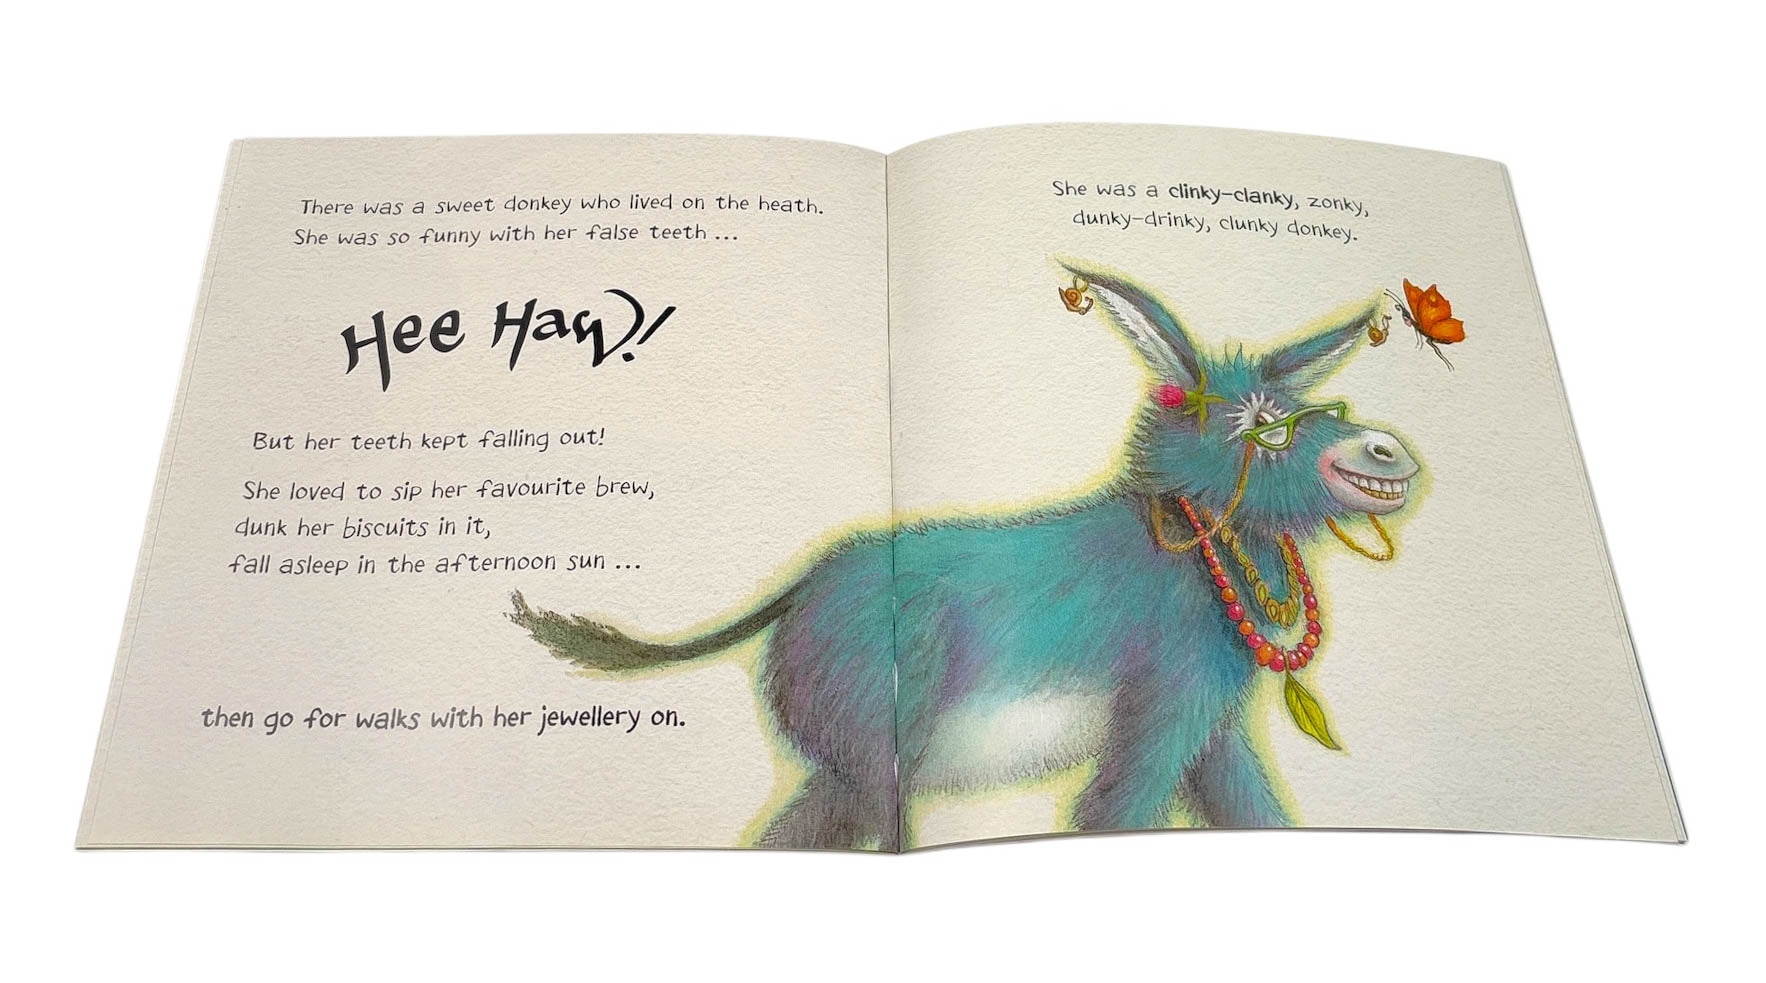 There was a sweet donkey who lived on the heath.
She was so funny with her false teeth ...
Hee Haw?!
But her teeth kept falling out!
She loved to sip her favourite brew,
dunk her biscuits in it,
fall asleep in the afternoon sun ...
then go for walks with her jewellery on.
She was a clinky-clanky, zonky,
dunky-drinky, clunky donkey.